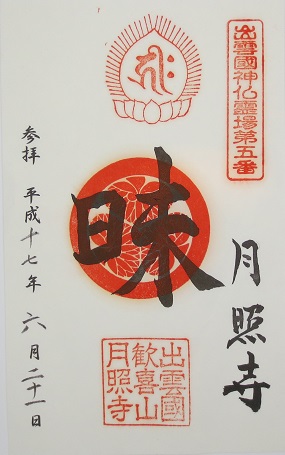 出雲國神仏靈場第五番
月照寺
昧
出雲國
歡喜山
月照寺
参拝 平成十七年 六月二十一日